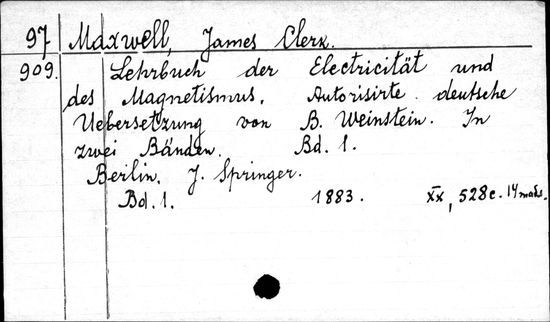 97 Maxwell, James Clerk.
909. Lehrbuch der Electricität und
des Magnetismus. Autorisirte deutsche
Uebersetzung von B. Weinstein. In
zwei Bänden. Bd. 1.
Berlin. J. Springer.
Bd. 1. 1883. XX, 528 c. 14